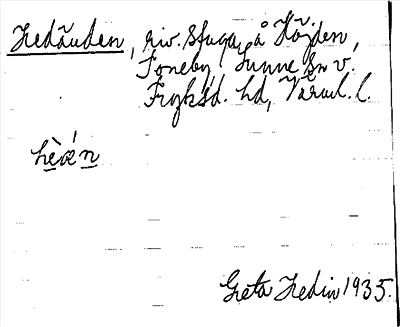 Hedåuden, riv. stuga å Höjden,
Toneby, Sunne sn v.
Fryksd. hd, Värml. l.
hèǽn
Greta Hedin 1935.